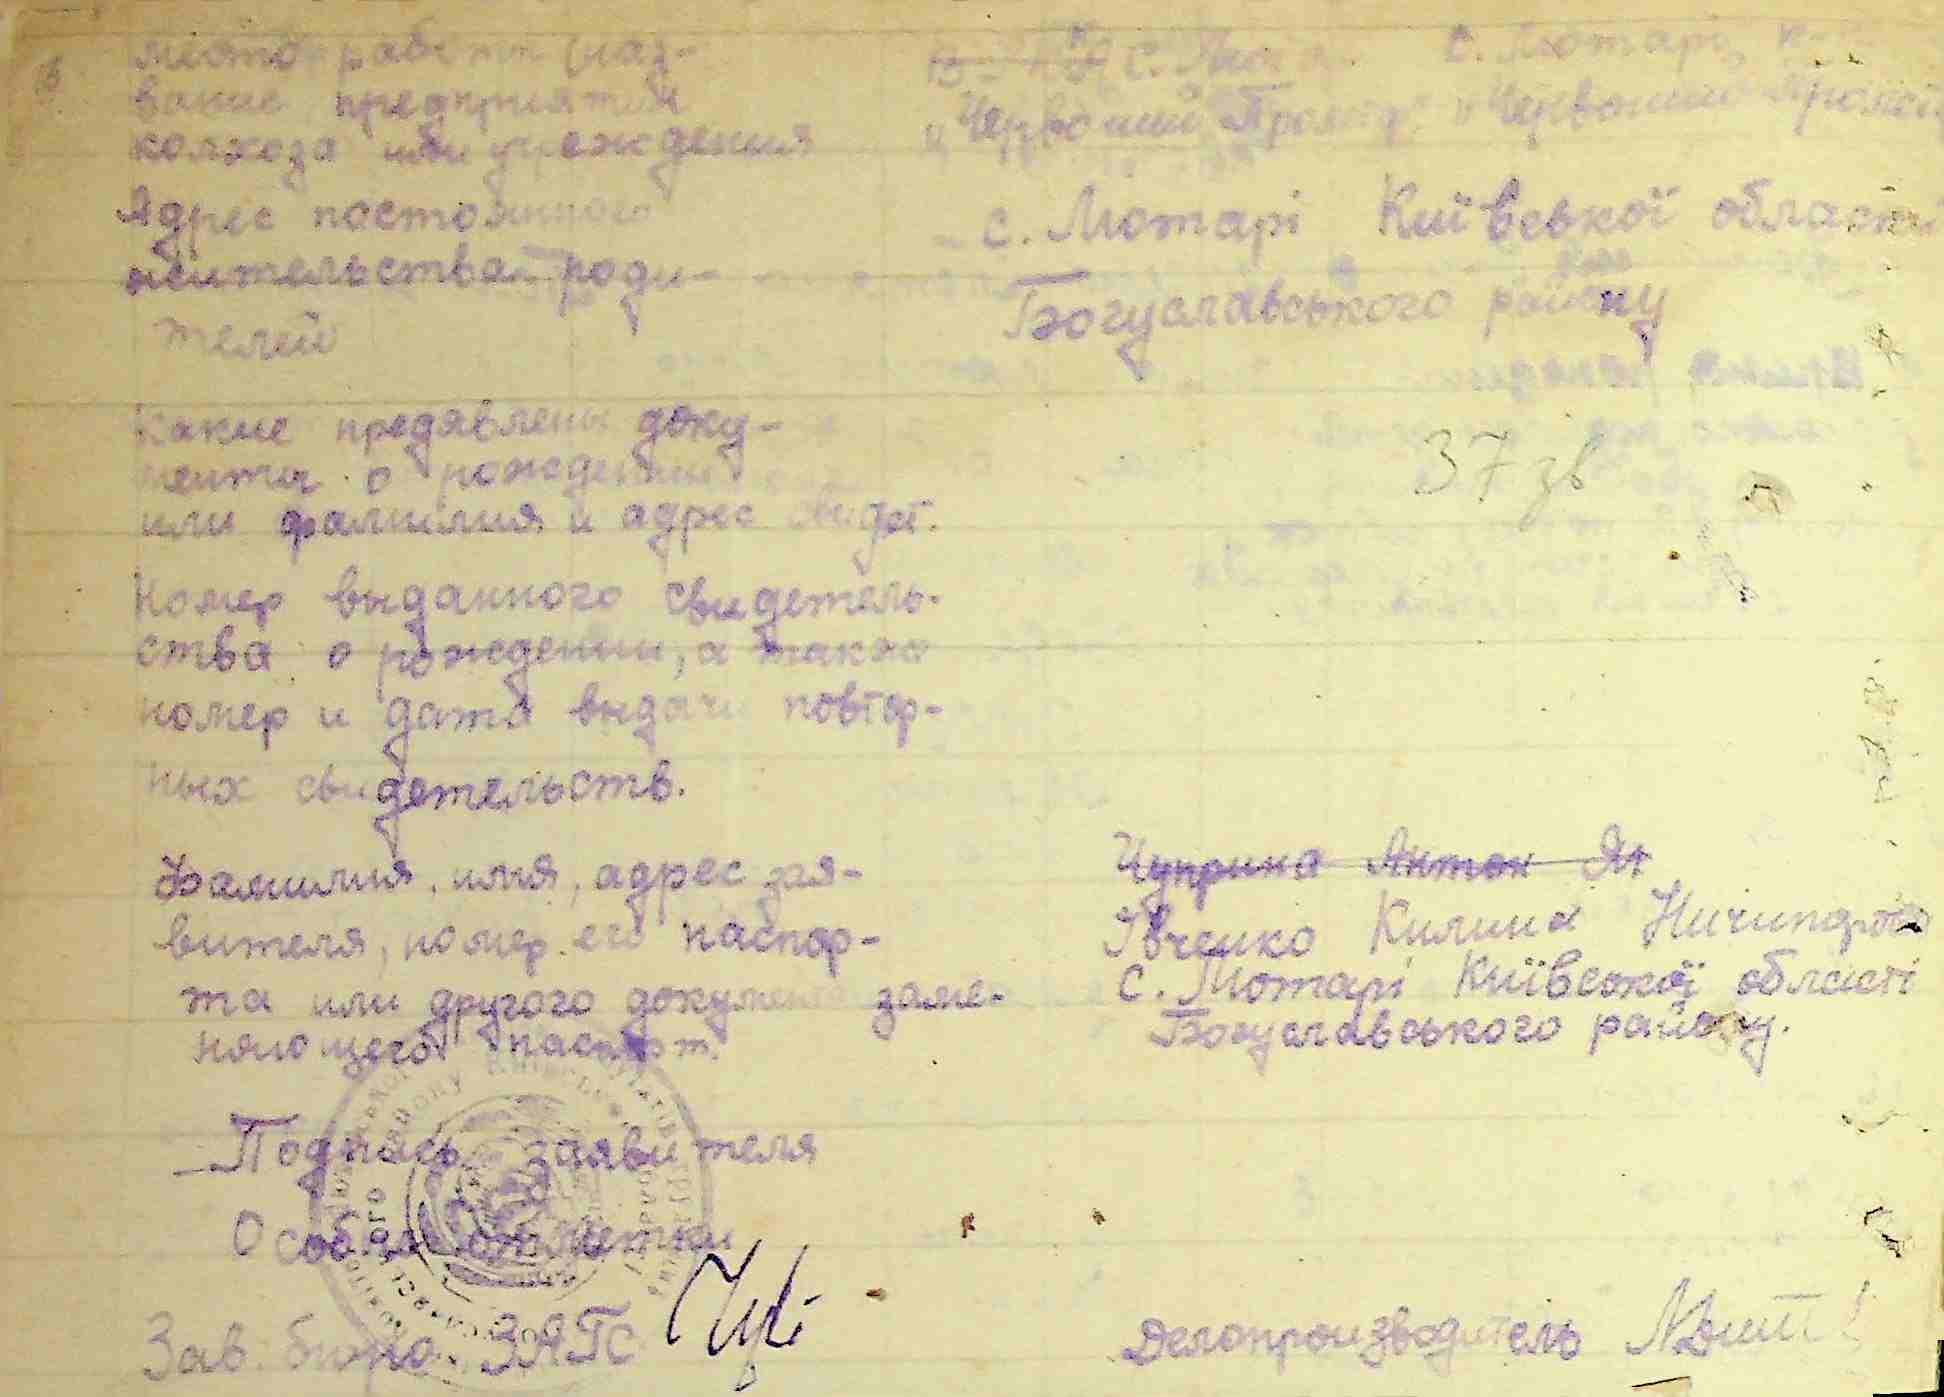 место работы (наз-
вание предприятия
колхоза или учреждения
с. Мотарі
„Червоний Промінь" „Червоний Промінь
Адрес постоянного
жительства роди-
телей
с. Мотарі Київської області
Богуславського району
Какие предявлены доку-
менты о рождении
или фамилия и адрес свидет.
37 зв
Номер выданного свидетель-
ства о рождении, а также
номер и дата выдачи повтор-
ных свидетельств.
Фамилия, имя, адрес зая-
вителя, номер его паспор-
та или другого документа заме-
няющего паспорт.
Чуприна Антон Як
Івченко Килина Ничипор
с. Мотарі Київської області
Богуславського району.
Подпись заявителя
Особые отметки
Зав. бюро ЗАГС
Делопроизводитель